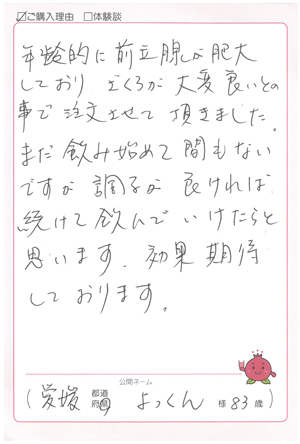 ☑ご購入理由 □体験談
年齢的に前立腺が肥大
しており ざくろが大変良いとの
事で注文させて頂きました。
まだ飲み始めて間もない
ですが調子が良ければ
続けて飲んでいけたらと
思います。効果期待
しております。
公開ネーム
(愛媛 都道府県 よっくん 様 83歳)